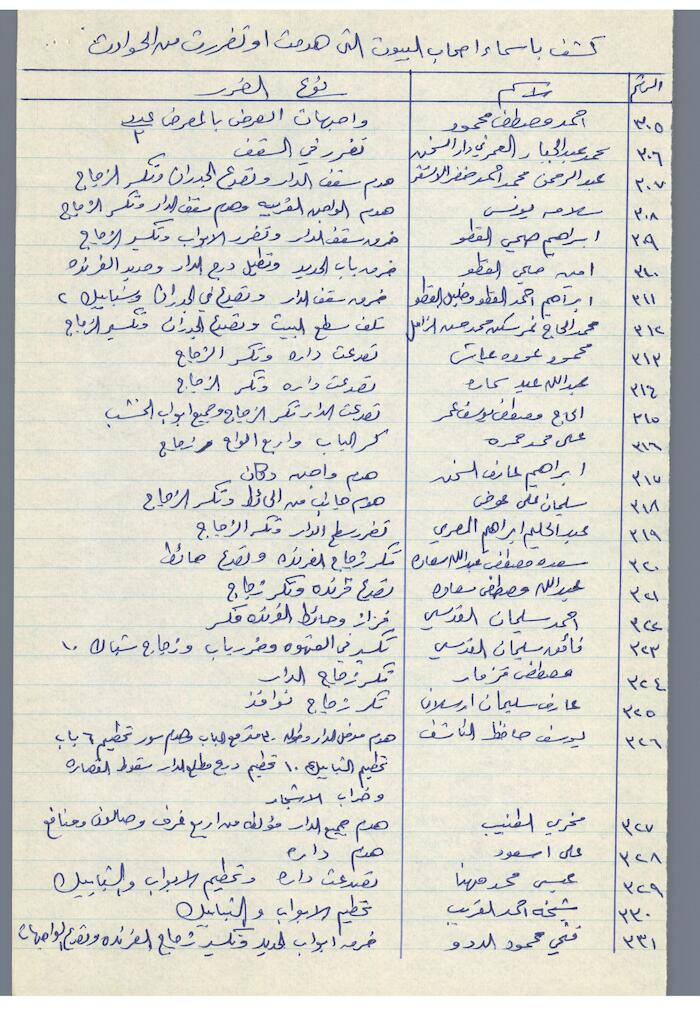 كشف باسماء اصحاب البيوت التي هدمت او تضررت من الحوادث
الرقم الاسم نوع الضرر
٣٠٥ احمد مصطفى محمود واجهات العرض بالمعرض عدد ٢
٣٠٦ محمد عبد الجبار العمري دار السخن تضرر في السقف
٣٠٧ عبد الرحمن محمد احمد خضر الاشقر هدم سقف الدار وتصدع الجدران وتكسر الزجاج
٣٠٨ سلامه يونس هدم الواجهه الغربيه وهدم سقف الدار وتكسر الزجاج
٣٠٩ ابراهيم صحي القطو خرق سقف الدار وتضرر الابواب وتكسير الزجاج
٣١٠ امين صحي القطو خرق باب الحديد وتعطيل درج الدار وحديد الفرنده
٣١١ ابراهيم احمد القطو وخليل القطو خرق سقف الدار وتصدع في الجدران وشبابيك ٢
٣١٢ محمد الحاج نمر سكن محمد حسن الزامل تلف سطح البيت وتصدع الجدران وتكسير الزجاج
٣١٣ محمود عوده عياش تصدعت داره وتكسر الزجاج
٣١٤ عبدالله عيد سماره تصدعت داره وتكسر الزجاج
٣١٥ الحاج مصطفى يوسف عمر تصدعت الدار تكسر الزجاج وجميع ابواب الخشب
٣١٦ على محمد حمزه كسر الباب واربع الواح زجاج
٣١٧ ابراهيم عارف السخن هدم واجهه دكان
٣١٨ سليمان على عوض هدم جانب من الحائط وتكسر الزجاج
٣١٩ عبد الحليم ابراهيم المصري تضرر سطح الدار وتكسر الزجاج
٣٢٠ سعده مصطفى عبدالله سعاده تكسر زجاج الفرنده وتصدع حائط
٣٢١ عبدالله مصطفى سعاده تصدع فرنده وتكسر زجاج
٣٢٢ احمد سليمان القدسي قزاز وحائط الفرنده مكسر
٣٢٣ فائق سليمان القدسي تكسير في القهوه وضرر باب وزجاج شباك ١٠
٣٢٤ مصطفى قزمار تكسر زجاج الدار
٣٢٥ عارف سليمان ارسلان تكسر زجاج نوافذ
٣٢٦ يوسف حافظ الناشف هدم مدخل الدار وطوله ٣٠ متر مع الباب وهدم سور تحطيم ٦ باب
تحطيم الشبابيك ١٠ تحطيم درج مطلع الدار سقوط القصاره
وخراب الاشجار
٣٢٧ فخري الطنيب هدم جميع الدار مؤلفه من اربع غرف وصالون ومنافع
٣٢٨ على اسعود هدم داره
٣٢٩ عيسى محمد مهنا تصدعت داره وتحطيم الابواب والشبابيك
٣٣٠ شيخه احمد الغريب تحطيم الابواب والشبابيك
٣٣١ فتحي محمود الددو خرق ابواب الحديد وتكسير زجاج الفرنده وتصدع الواجهات